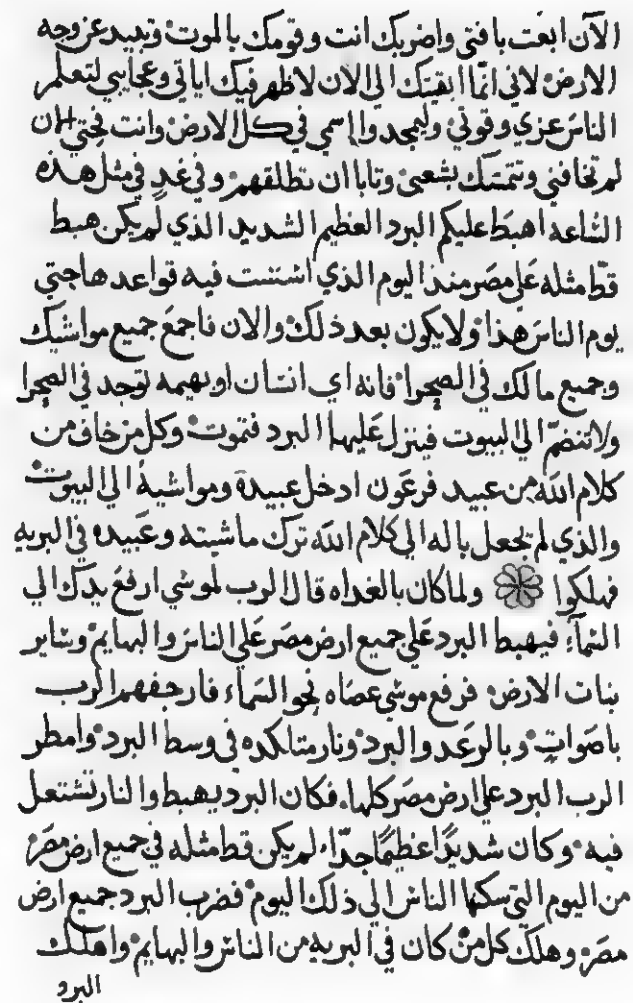 الآن ابعت بافتي واضربك انت وقومك بالموت وتبيد عن وجه
الارض لاني انما ابقيتك الي الان لاظهر فيك اياتي وعجايبي لتعلم
الناس عزي وقوتي وليمجدوا اسمي في كل الارض وانت فحتي الان
لم تخافني وتتمسك بشعبي وتابا ان تطلقهم وفي غدٍ في مثل هذه
الساعه اهبط عليكم البرد العظيم الشديد الذي لم يكن هبط
قط مثله علي مصر منذ اليوم الذي اسسست فيه قواعدها حتي
يوم الناس هذا ولا يكون بعد ذلك والان فاجمع جميع مواشيك
وجميع مالك في الصحرا فانه اي انسان او بهيمه توجد في الصحرا
ولا تنضم الي البيوت فينزل عليها البرد فتموت وكل من خاف من
كلام الله من عبيد فرعون ادخل عبيدة ومواشية الي البيوت
والذي لم يجعل باله الي كلام الله ترك ماشيته وعبيده في البريه
فهلكوا ولما كان بالغداه قال الرب لموسي ارفع يدك الي
السماء فيهبط البرد علي جميع ارض مصر علي الناس والبهايم وساير
نبات الارض فرفع موسي عصاه نحو السماء فارجفهم الرب
باصواتٍ وبالرعد والبرد ونار متلكده في وسط البرد وامطر
الرب البرد علي ارض مصر كلها فكان البرد يهبط والنار تشتعل
فيه وكان شديدًا عظيمًا جدًا لم يكن قط مثله في جميع ارض مصر
من اليوم التي سكنها الناس الي ذلك اليوم فضرب البرد جميع ارض
مصر وهلك كل من كان في البريه من الناس والبهايم واهلك
البرد